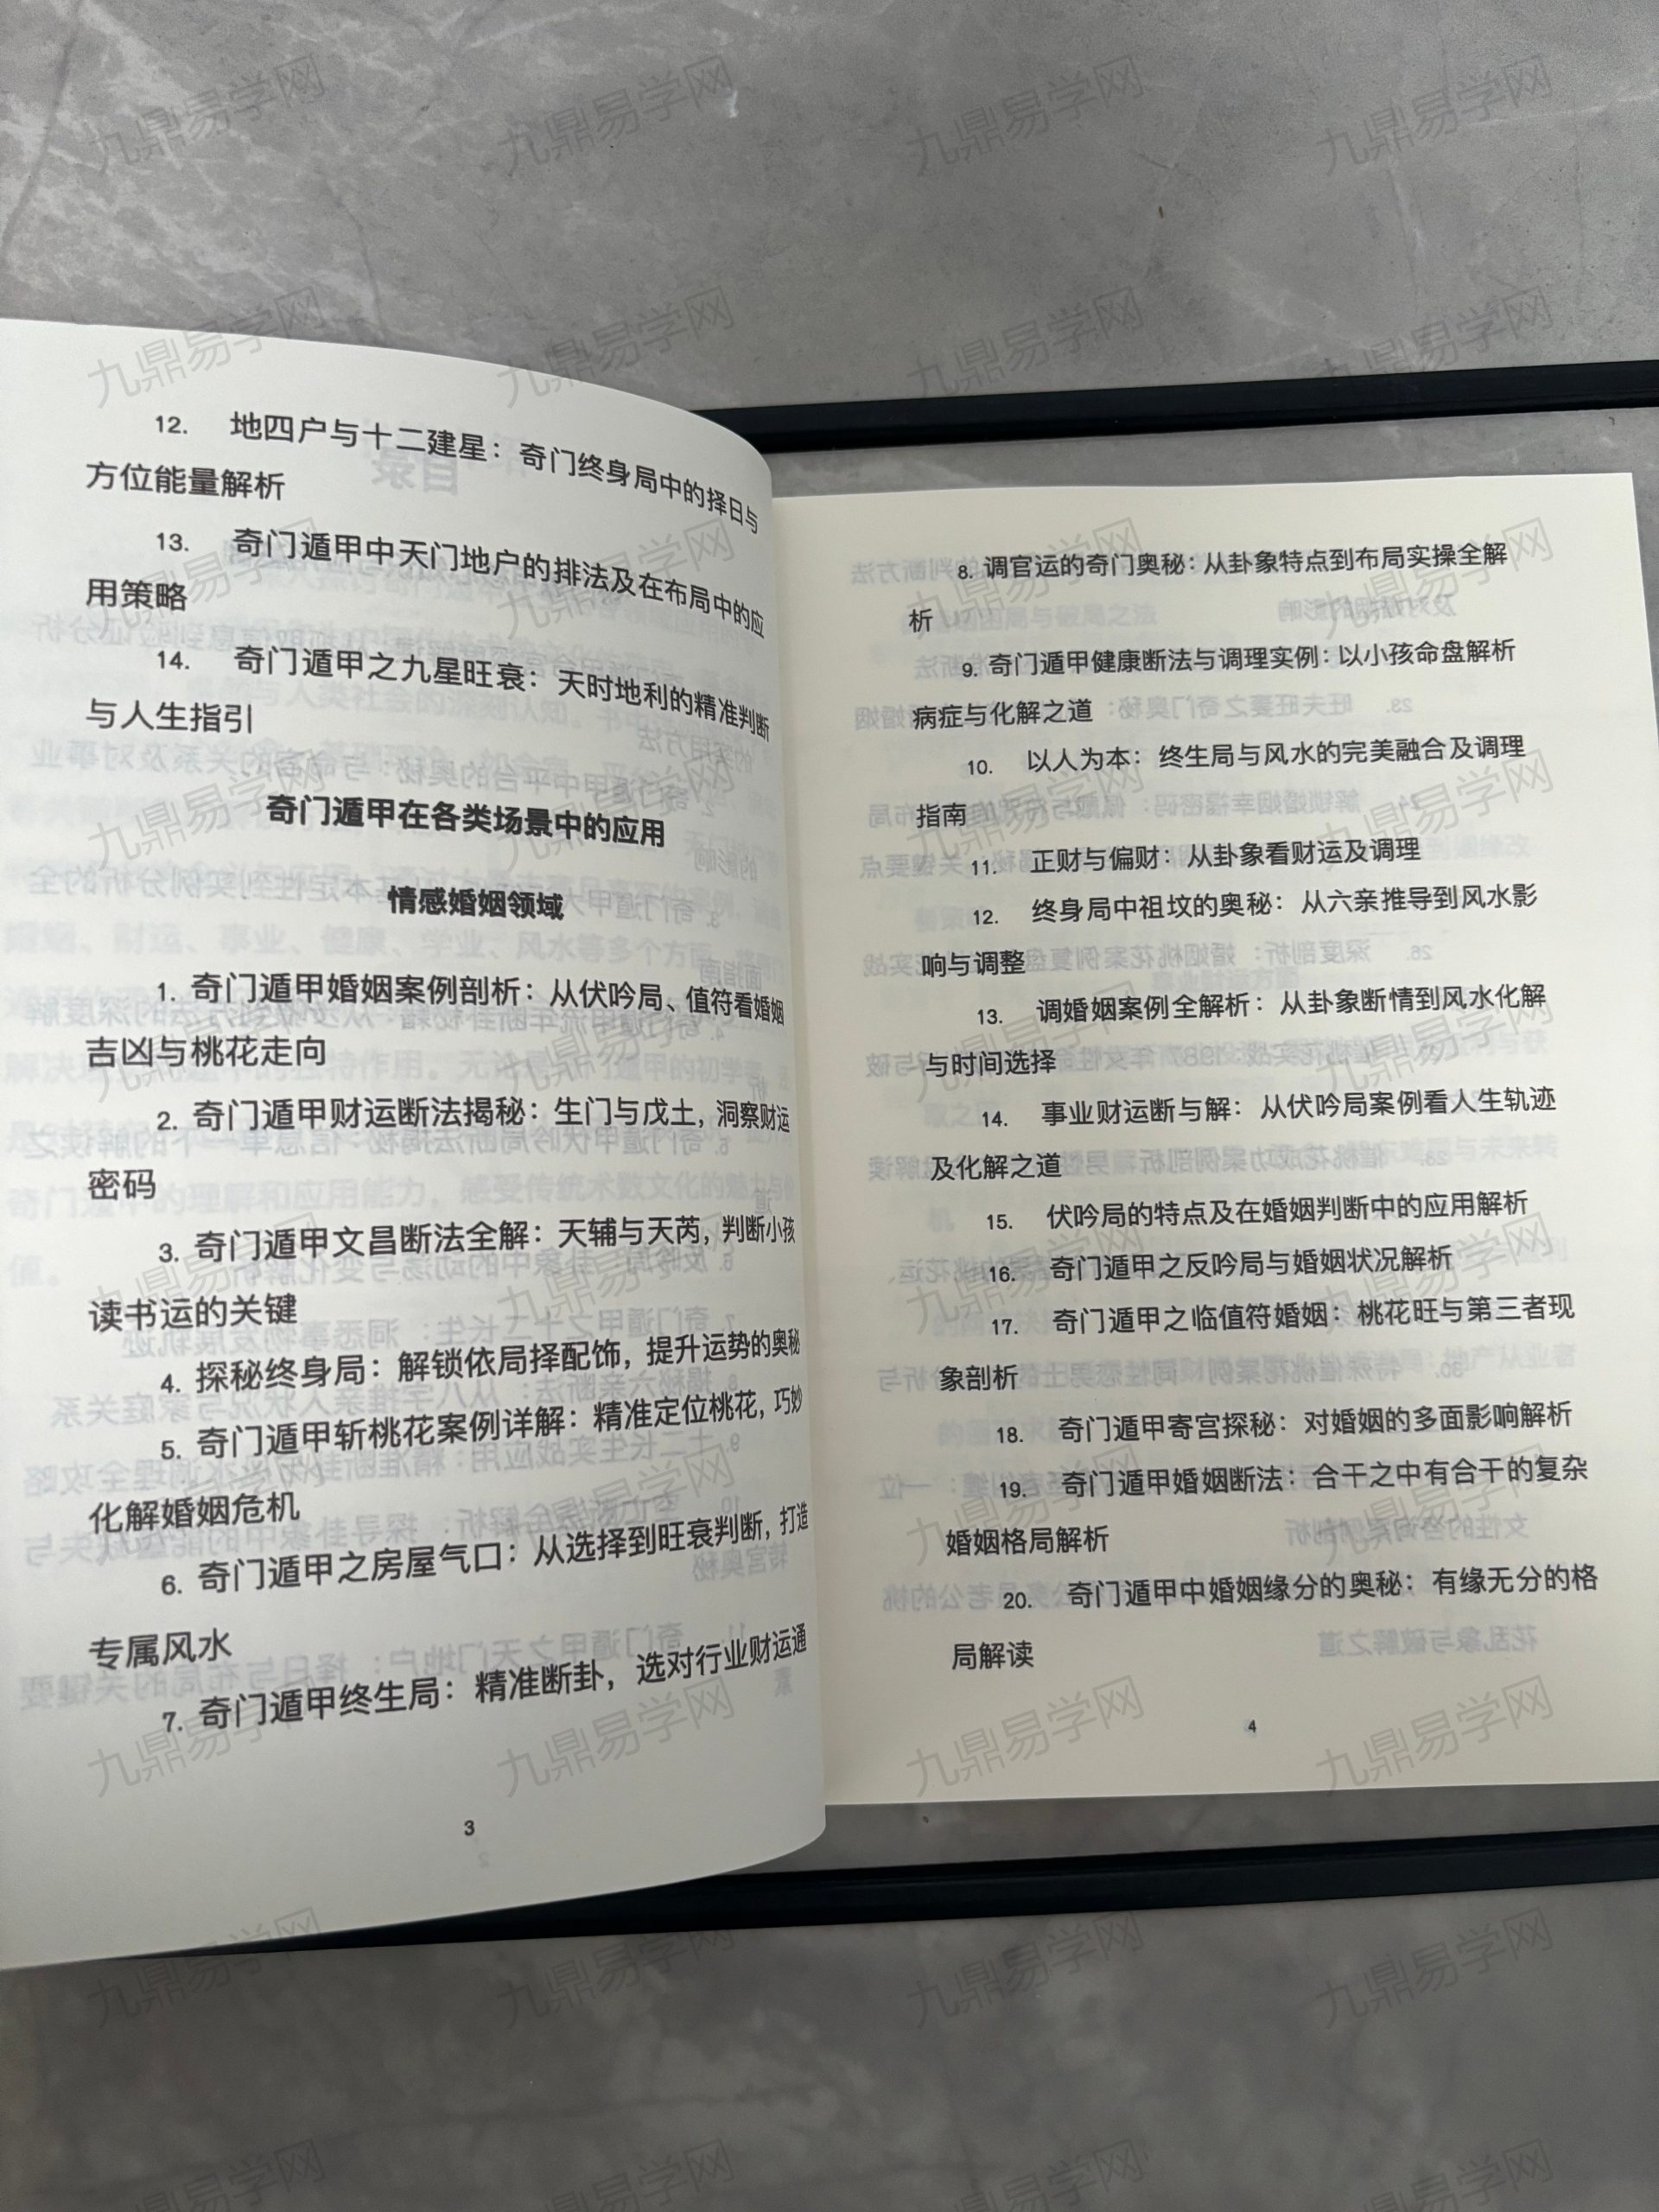 12. 地四户与十二建星：奇门终身局中的择日与
方位能量解析
13. 奇门遁甲中天门地户的排法及在布局中的应
用策略
14. 奇门遁甲之九星旺衰：天时地利的精准判断
与人生指引
奇门遁甲在各类场景中的应用
情感婚姻领域
1. 奇门遁甲婚姻案例剖析：从伏吟局、值符看婚姻
吉凶与桃花走向
2. 奇门遁甲财运断法揭秘：生门与戊土，洞察财运
密码
3. 奇门遁甲文昌断法全解：天辅与天芮，判断小孩
读书运的关键
4. 探秘终身局：解锁依局择配饰，提升运势的奥秘
5. 奇门遁甲斩桃花案例详解：精准定位桃花，巧妙
化解婚姻危机
6. 奇门遁甲之房屋气口：从选择到旺衰判断，打造
专属风水
7. 奇门遁甲终生局：精准断卦，选对行业财运通
3
8. 调官运的奇门奥秘：从卦象特点到布局实操全解
析
9. 奇门遁甲健康断法与调理实例：以小孩命盘解析
病症与化解之道
10. 以人为本：终生局与风水的完美融合及调理
指南
11. 正财与偏财：从卦象看财运及调理
12. 终身局中祖坟的奥秘：从六亲推导到风水影
响与调整
13. 调婚姻案例全解析：从卦象断情到风水化解
与时间选择
14. 事业财运断与解：从伏吟局案例看人生轨迹
及化解之道
15. 伏吟局的特点及在婚姻判断中的应用解析
16. 奇门遁甲之反吟局与婚姻状况解析
17. 奇门遁甲之临值符婚姻：桃花旺与第三者现
象剖析
18. 奇门遁甲寄宫探秘：对婚姻的多面影响解析
19. 奇门遁甲婚姻断法：合干之中有合干的复杂
婚姻格局解析
20. 奇门遁甲中婚姻缘分的奥秘：有缘无分的格
局解读
4
九鼎易学网